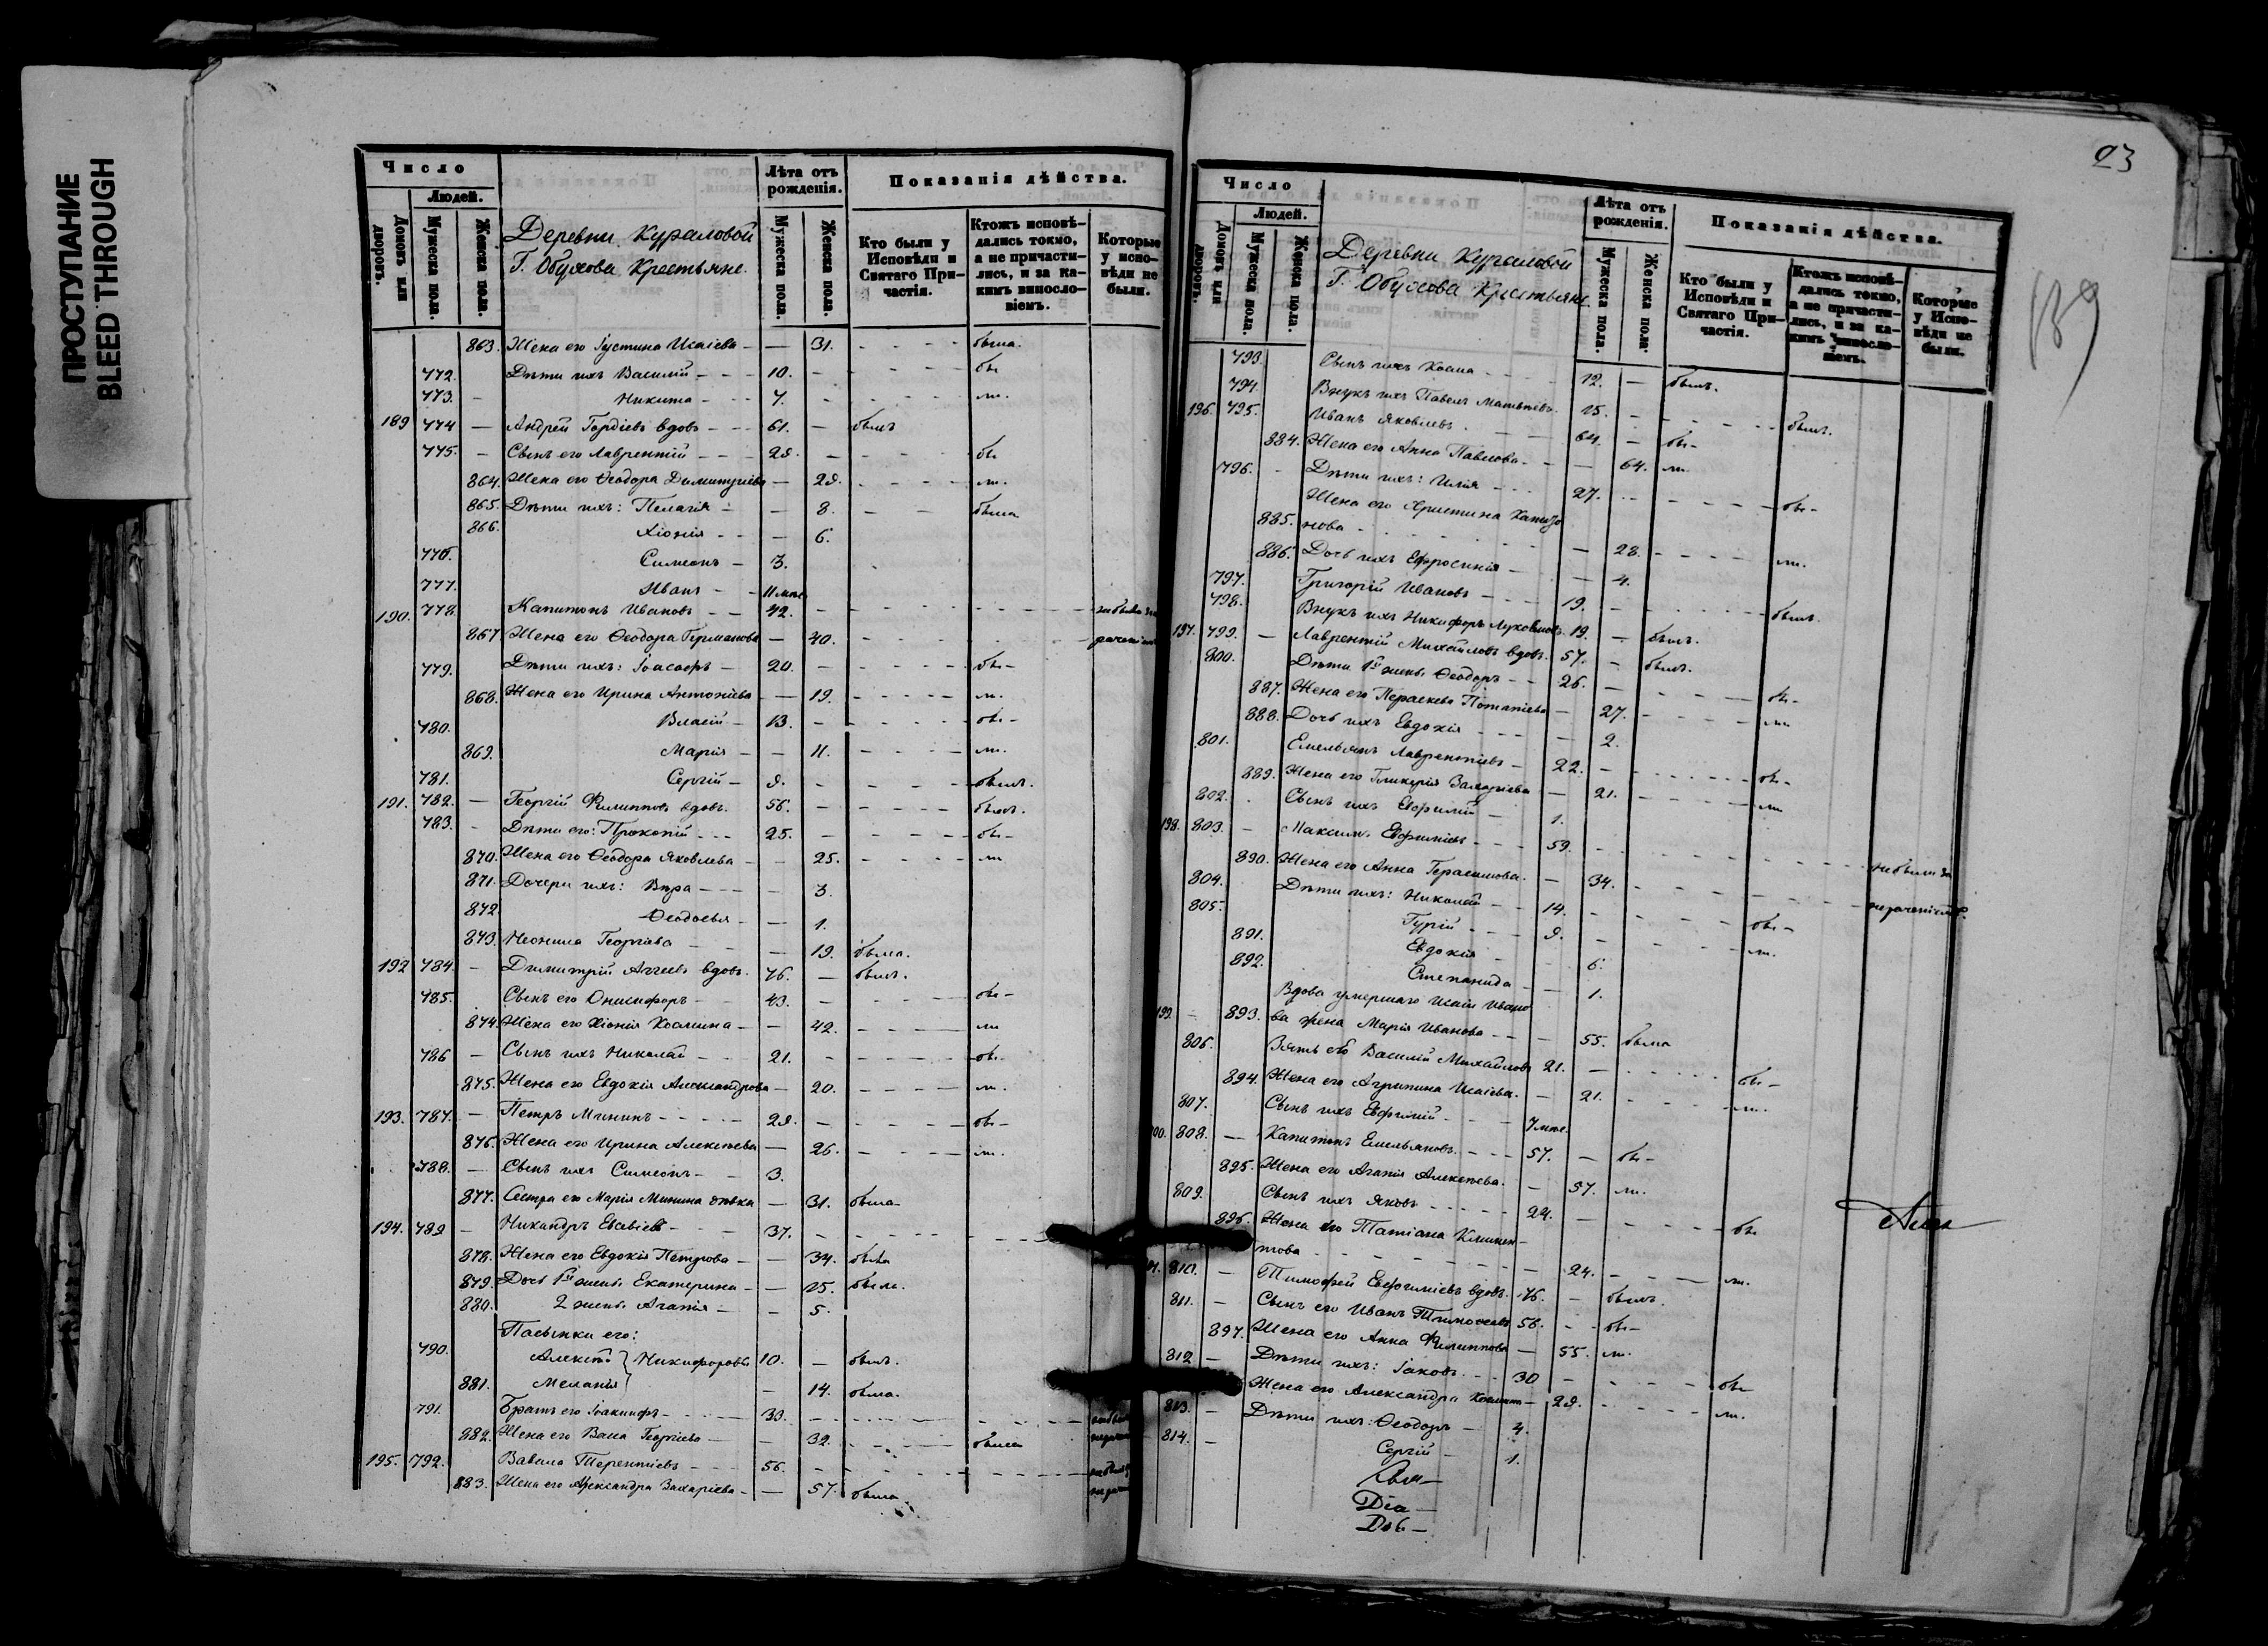 ПРОСТУПАНИЕ
BLEED THROUGH
Число
Людей.
Домовъ или дворовъ.
Мужеска пола.
Женска пола.
Деревни Кураловой
Г. Обухова Крестьяне.
Лѣта отъ рожденія.
Мужеска пола.
Женска пола.
Показанія дѣйства.
Кто были у Исповѣди и Святаго При-частія.
Ктожъ исповѣ-дались токмо, а не причасти-лись, и за ка-кимъ виносло-віемъ.
Которые у испо-вѣди не были.
863. Жена его Іустина Исаіева — — 31. - - - - была.
772. Дѣти ихъ Василій - - - 10. - - - - - бы
773. - Никита - - - 7. - - - - - ли.
189 774 — Андрей Гордіевъ вдовъ - - - 61. — былъ
775. - Сынъ его Лаврентій - - - 29. - - - - бы
864. Жена его Ѳеодора Димитріева — 29. - - - - ли.
865. Дѣти ихъ: Пелагія - — 8. - - была
866. Хіонія - - — 6.
776. Симеонъ - 3.
777. Иванъ - - 11 мѣс.
190. 778. Капитонъ Ивановъ - - 42. - - - - - - не были за
867 Жена его Ѳеодора Германова — 40. - - - - - -
779. Дѣти ихъ: Іоасафъ — 20. — - - - - бы -
868. Жена его Ирина Антоніева — — 19. - - - - ли.
780. Власій - 13. - - - - - бы -
869. Марія - - 11. - - - - ли.
781. Сергій - 9. - - - - былъ.
191. 782. — Георгій Филипповъ вдовъ. 56. - - - - - былъ.
783. - Дѣти его: Прокопій - - - 25. - - - - - бы -
870. Жена его Ѳеодора Яковлева - - 25. - - - - ли
871. Дочери ихъ: Вѣра - - - - 3.
872. Ѳеодосья - — 1.
873. Неонила Георгіева - — 19. была.
192 784. - Димитрій Аггеевъ вдовъ. 76. — былъ.
785. Сынъ его Онисифоръ - 43. - - - - - бы -
874. Жена его Хіонія Космина - - 42. - - - - ли
786 — Сынъ ихъ Николай - - 21. - - - - бы -
875. Жена его Евдокія Александрова — 20. - - - - ли.
193. 787. — Петръ Мининъ - - - - - 29. - - - - - бы -
876. Жена его Ирина Алексѣева — 26. - - - - ли.
788. — Сынъ ихъ Симеонъ - - 3.
877. Сестра его Марія Минина дѣвка — 31. была
194. 789 - Никандръ - - - 37. - - - - -
878. Жена его Евдокія Петрова - — 34. была
879. Дочь 1й жены Екатерина - — 15. была.
880. 2 жены Агапія - - 5.
Пасынки его:
790. Алексѣй } Никифоровы 10. — былъ.
881. Меланія } — 14. была.
791. Братъ его Іоакинфъ - - - - 33. - - - - - -
882. Жена его Васса Георгіева - - 32. - - - - была
195. 792. Вавила Терентіевъ - - - 56. - - - - - -
883. Жена его Александра Захаріева - — 57. была.
23
189
Число
Людей.
Домовъ или дворовъ.
Мужеска пола.
Женска пола.
Деревни Кураловой
Г. Обухова Крестьяне.
Лѣта отъ рожденія.
Мужеска пола.
Женска пола.
Показанія дѣйства.
Кто были у Исповѣди и Святаго При-частія.
Ктожъ исповѣ-дались токмо, а не причасти-лись, и за ка-кимъ виносло-віемъ.
Которые у Испо-вѣди не были.
793. Сынъ ихъ Косма - - - 12. — былъ.
794. Внукъ ихъ Павелъ Матвѣевъ. 15. - - - - - былъ.
196. 795. Иванъ Яковлевъ. - - 64. — бы -
884. Жена его Анна Павлова - - — 64. ли.
796. - Дѣти ихъ: Илія - - - 27. - - - - - бы -
Жена его Христина Капито
885. нова - - - - - — 28. - - - - ли.
886. Дочь ихъ Ефросинія - — 4.
797. Григорій Ивановъ - - - 19. - - - - - былъ.
798. Внукъ ихъ Никифоръ 19. — былъ.
197. 799. — Лаврентій Михайловъ вдовъ. 57. - былъ.
800. Дѣти 1й жены Ѳеодоръ - - 26. - - - - - бы -
887. Жена его Параскева Потапіева — 27. - - - - ли
888. Дочь ихъ Евдокія - - - - 2.
801. Емельянъ Лаврентіевъ - 22. - - - - - бы -
889. Жена его Гликерія Захаріева — 21. - - - - ли
802. Сынъ ихъ Евфимій - 1.
198. 803. — Максимъ Евфиміевъ - - - 59. - - - - - - не были за
890. Жена его Анна Герасимова. — 34. - - - - - нераченіемъ.
804. Дѣти ихъ: Николай - - 14. - - - - - бы -
805. Гурій - - - 9. - - - - - ли.
891. Евдокія - - 6.
892. Степанида - — 1.
Вдова умершаго Исаіи Ивано
199. - 893. ва жена Марія Иванова - - — 55. была
806. Зять его Василій Михайловъ 21. — - - - - бы -
894. Жена его Агрипина Исаіева. — 21. - - - - ли.
807. Сынъ ихъ Евфимій - - - 7 мѣс.
00. 808. — Капитонъ Емельяновъ. - - - 57. — бы -
895. Жена его Агапія Алексѣева. — 57. ли.
809. Сынъ ихъ Яковъ - - - - - 24. - - - - - бы
896. Жена его Татіана Климен-
това - - - - - - 24. - - - - ли.
810. — Тимофей Евфиміевъ вдовъ. 76. — былъ.
811. — Сынъ его Иванъ Тимофеевъ 56. - - бы -
897. Жена его Анна Филиппова — 55. ли.
812 — Дѣти ихъ: Іаковъ. - - 30 - - - - - бы
Жена его Александра — 29. - - - - ли.
813. — Дѣти ихъ: Ѳеодоръ - 4.
814. - Сергій - 1.
Діа -